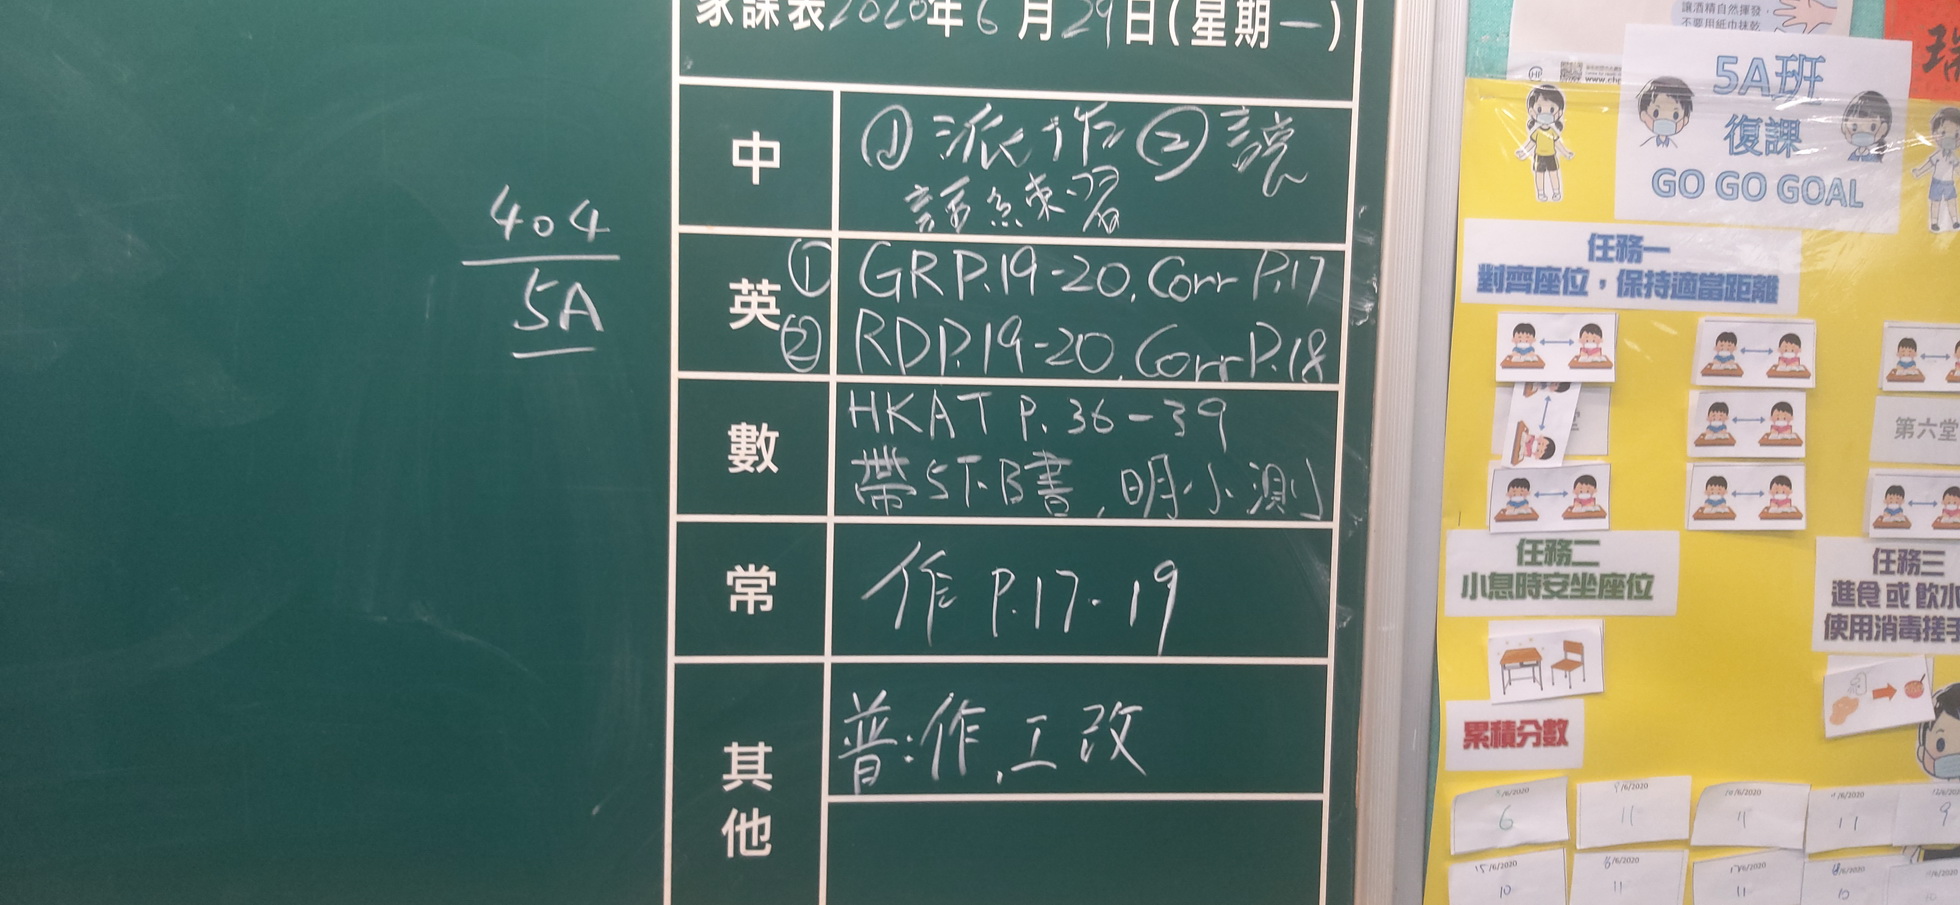 家課表2020年6月29日(星期一)
中
①派作②說
話練習
英
①GRP.19-20.Corr P.17
②RDP.19-20.CorrP.18
數
HKAT P.36-39
帶5下B書,明小測
常
作 P.17-19
其他
普:作,工改
404
5A
讓酒精自然揮發,
不要用紙巾抹乾
瑞
5A班
復課
GO GO GOAL
任務一
對齊座位,保持適當距離
第六堂
任務二
小息時安坐座位
任務三
進食 或 飲水
使用消毒搓手
累積分數
6
11
11
11
9
10
11
11
10